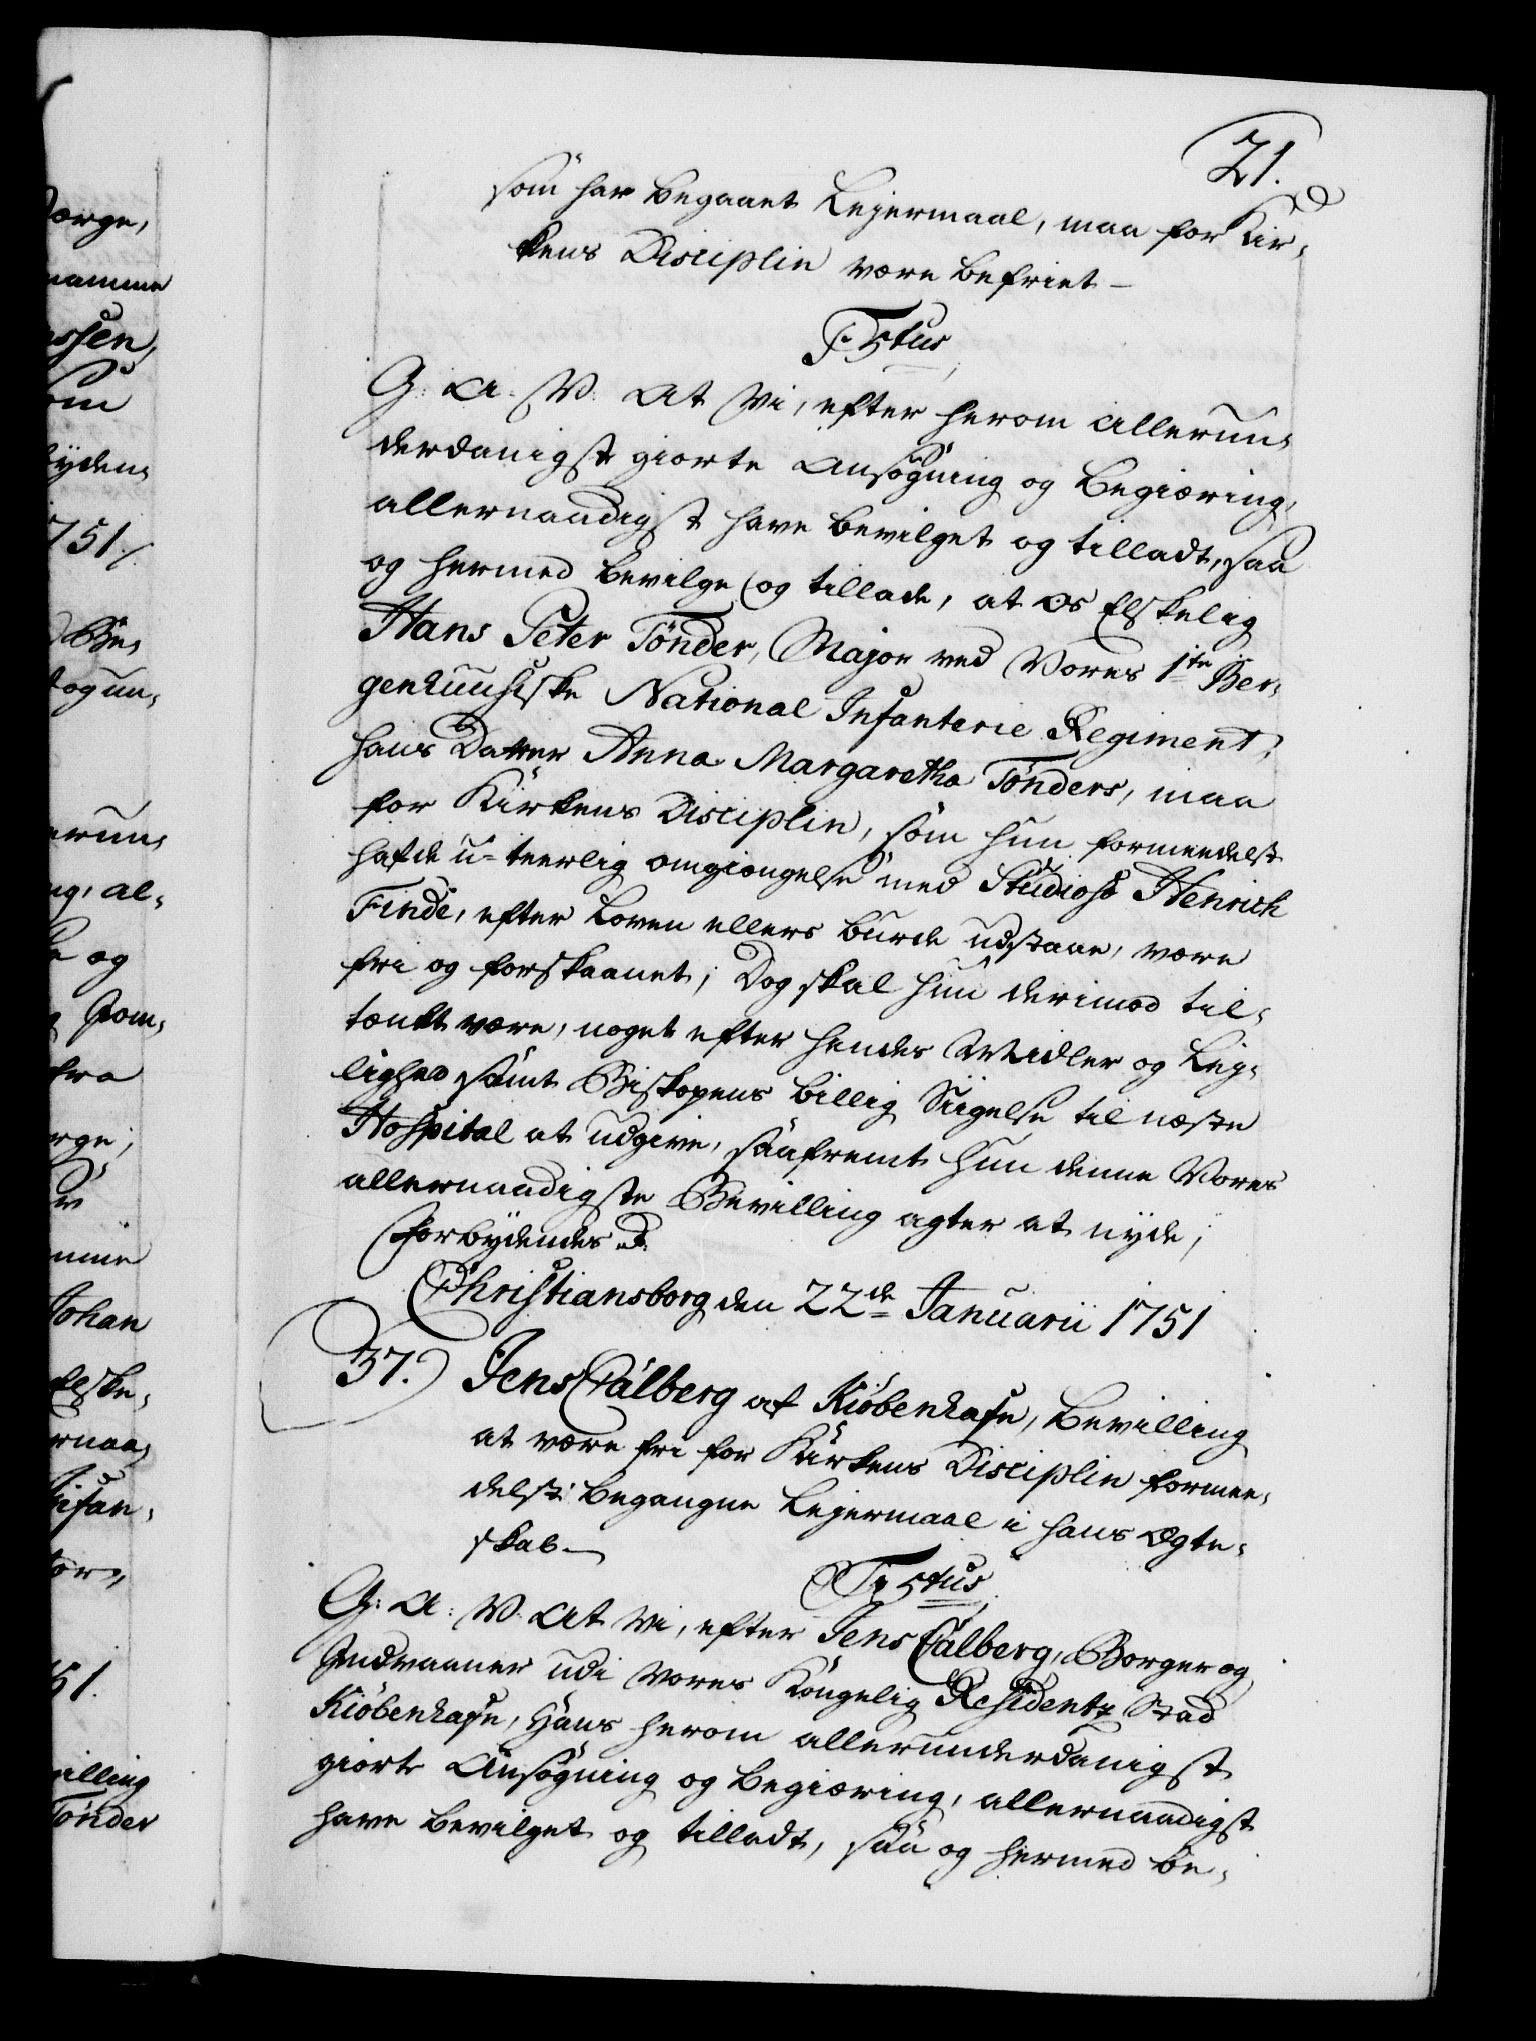 21.
som har begaaet Lejermaal, maa for Kir-
kens Disciplin være befriet -
F: 5tus
G: A: V: At Vi, efter herom allerun-
derdanigst giorte Ansøgning og Begiæring,
allernaadigst have bevilget og tilladt, saa
og hermed bevilge og tillade, at Os Elskelig
Hans Peter Tönder, Major ved Vores 1te Ber-
genhuusiske National Infanterie Regiment,
hans Datter Anna Margaretha Tönders, maa
for Kirkens Disciplin, som hun formeedelst
hafde u-teerlig omgiængelse med Studioso Henrich
Finde, efter Loven ellers burde udstaae, være
fri og forskaanet; Dog skal hun derimod til-
tænkt være, noget efter hendes Midler og Lej-
lighed samt Biskopens billig Siigelse til næste
Hospital at udgive, saafremt hun denne Vores
allernaadigste Bevilling agter at nyde;
Forbydendes &.
Christiansborg den 22de Januarii 1751
37. Jens Calberg af Kiöbenhafn, Bevilling
at være fri for Kirkens Disciplin formee-
delst begangne Lejermaal i hans Ægte-
skab -
F: 5tus
G: A: V: At Vi, efter Jens Calberg, Borger og
Indvaaner udi Vores Kongelig Residentz Stad
Kiöbenhafn, Hans herom allerunderdanigst
giorte Ansøgning og Begiæring, allernaadigst
have bevilget og tilladt, saa og hermed be-